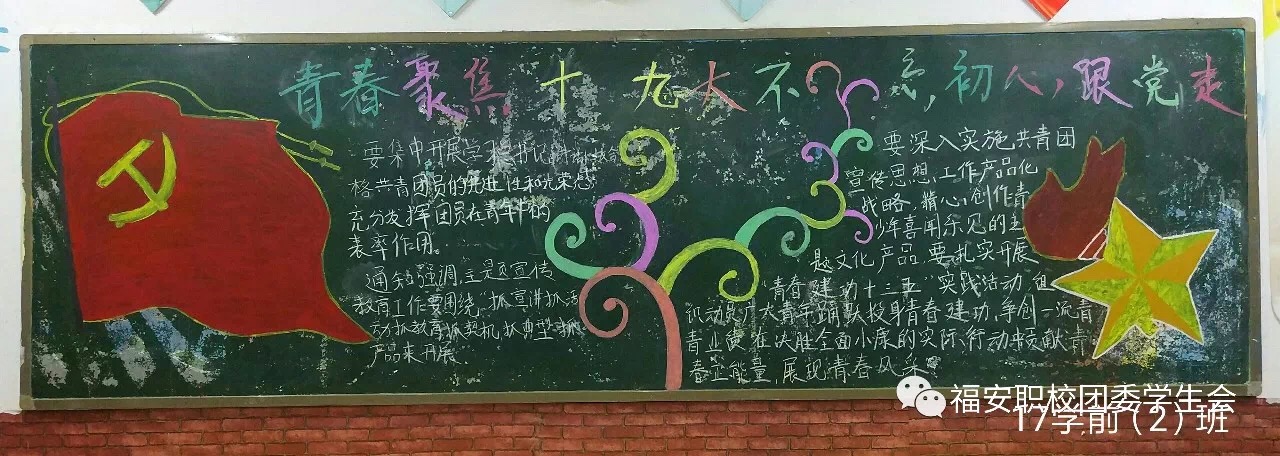 青春聚焦十九大不忘初心,跟党走
要集中开展学习
格共青团员的先进性和光荣感
充分发挥团员在青年中的
表率作用。
通知强调,主题宣传
教育工作要围绕,抓宣讲抓活
动抓教育抓契机抓典型抓
产品来开展
要深入实施共青团
宣传思想,工作产品化
战略,精心创作青
少年喜闻乐见的主
题文化产品,要扎实开展
"青春建功十三五"实践活动,组
织动员广大青年踊跃投身青春建功,争创一流青
青业责在决胜全面小康的实际行动中贡献青
春正能量,展现青春风采
福安职校团委学生会
17学前(2)班